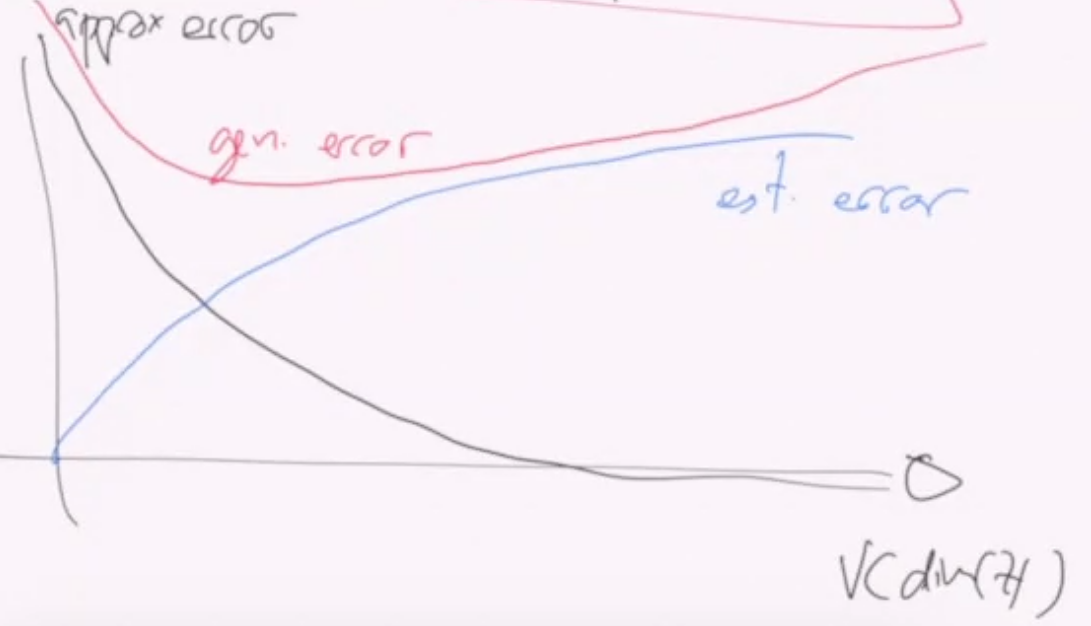 approx error
gen. error
est. error
VCdim(H)